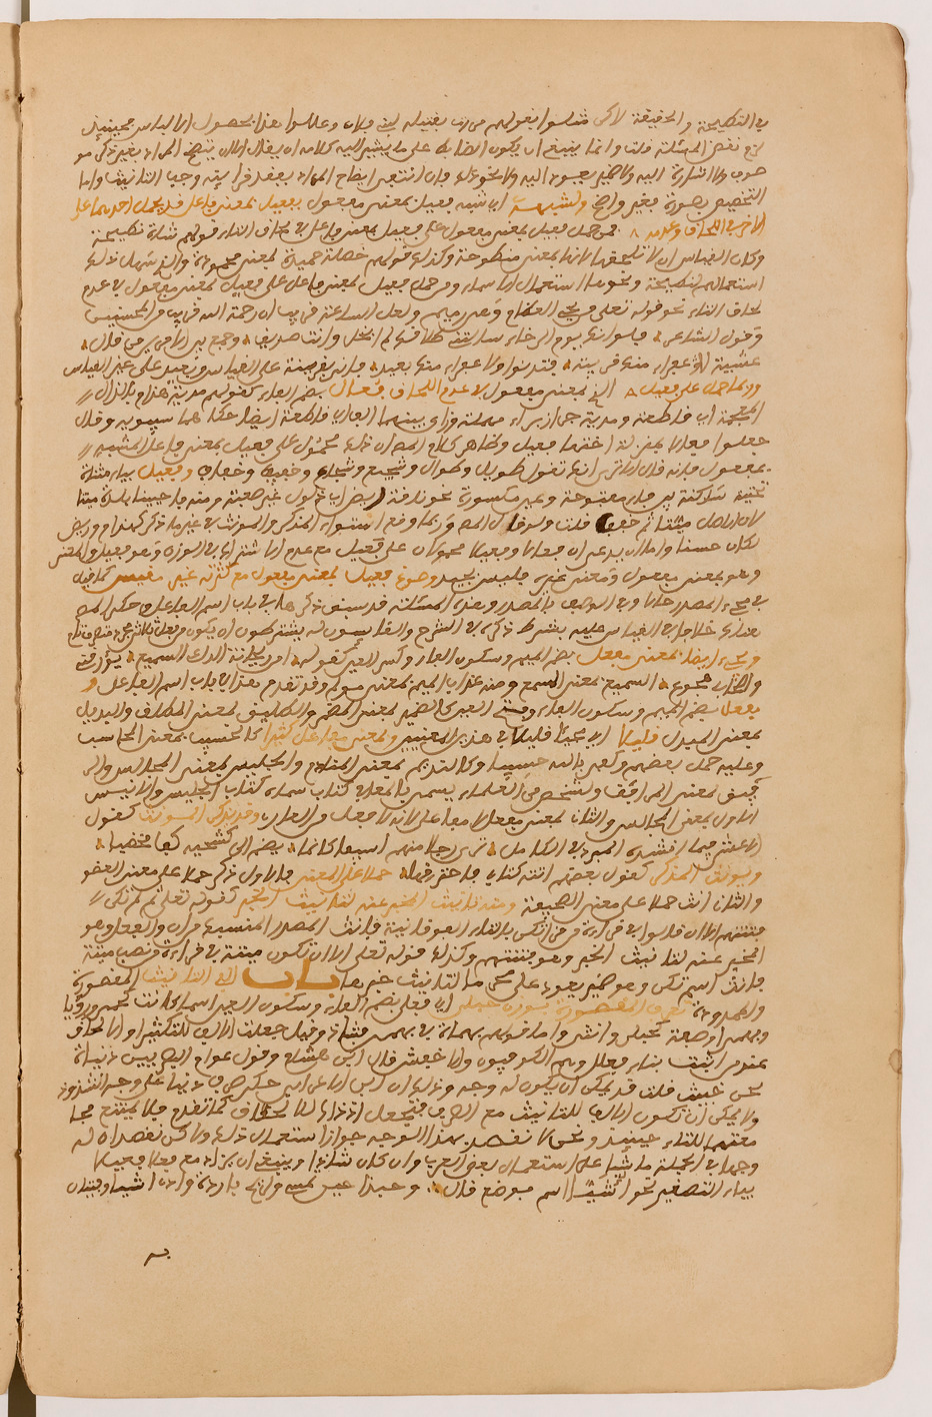 في النطيحة والحقيقة لاكن مثلوا بقولهم مررت بقتيلة بني فلان وعللوا هذا بحصول الالباس فحينئذ
قلت وانما ينبغي ان يكون الضابط على ما يشير اليه كلامه ان يقال ان
التخصيص بصورة فغير واضح ولشبهه اي شبه فعيل بمعنى مفعول بفعيل بمعنى فاعل قد يحمل احدهما على
الاخر في اللحاق وعدمه فمن حمل فعيل بمعنى مفعول على فعيل بمعنى فاعل في لحاق التاء قولهم شاة نطيحة
وكان القياس ان لا تلحقها لانها بمعنى منطوحة وكذلك قولهم خصلة حميدة لمعنى محمودة والذي سهل ذلك
استعمالهم نطيحة ونحوها استعمال الاسماء ومن حمل فعيل بمعنى فاعل على فعيل بمعنى مفعول في عدم
لحاق التاء نحو قوله تعلى من يحي العظام وهي رميم ولعل الساعة قريب ان رحمة الله قريب من المحسنين
وقول الشاعر فلو انك يوم الرخاء سالتني طلاقك لم ابخل وانت صديق وجمع بين الامرين من قال
عشية لا عفراء منك قريبة فتدنو ولا عفراء منك بعيد فان قريبة على القياس وبعيد على غير القياس
وربما حمل على فعيل الذي بمعنى مفعول في عدم اللحاق فُعال بضم الفاء كقولهم مدية هذام بالذال
المعجمة اي قاطعة ومدية جراز براء مهملة وزاي بينهما الف اي قاطعة ايضا حكاهما سيبويه وقال
جعلوا فعالا بمنزلة اختها فعيل وظاهر كلام المص ان ذلك محمول على فعيل بمعنى فاعل المشبه
بمفعول فانه قال الا ترى انك تقول طويل وطوال وشجيع وشجاع وخفيف وخفاف وفيعل بياء مثناة
تحتية ساكنة بين فاء مفتوحة وعين مكسورة نحو ناقة ريض اي ذلول غير صعبة ومنه فاحيينا به بلدة ميتا
لان الاصل ميتا ثم خفف قلت ولو قال المص وربما وقع استواء المذكر والمونث في غير ما ذكر كهذام وريض
لكان حسنا واما ان يدعى ان فعالا وفيعلا محمولان على فعيل مع عدم الاشتراك في الوزن وهو فعيل والمعنى
وهو بمعنى مفعول ومعنى غيره فليس بجيد وصوغ فعيل بمعنى مفعول مع كثرته غير مقيس كما قيل
في مجيء المصدر حالا وفي الوصف بالمصدر وهذه المسئلة قد سبق ذكرها في باب اسم الفاعل وحكى المص
هناك خلافا في القياس عليه بشرط ذكره في الشرح والقايسون له يشترطون ان يكون من فعل ثلاثي مجرد متصرف تام
ويجيء ايضا بمعنى مفعل بضم الميم وسكون الفاء وكسر العين كقوله امن ريحانة الداعي السميع يؤرقني
واصحابي هجوع السميع بمعنى المسمع ومنه عذاب اليم بمعنى مولم وقد تقدم هذا في باب اسم الفاعل و
مفعل بضم الميم وسكون الفاء وفتح العين كالضمير بمعنى المضمر والطليق بمعنى المطلق والبديل
بمعنى المبدل قليلا اي مجيئا قليلا في هذين المعنيين وبمعنى مفاعل كثيرا كالحسيب بمعنى المحاسب
وعليه حمل بعضهم وكفى بالله حسيبا وكالنديم بمعنى المنادم والجليس بمعنى المجالس والمر
فيق بمعنى المرافق ولشخص من العلماء يسمى بالمعافى كتاب سماه كتاب الجليس والانيس
الاول بمعنى المجالس والثاني بمعنى مفعل لا مفاعل لانه لا فاعل من الفاء وقد يذكر المونث كقول
الاعشى فيما انشده المبرد في الكامل ترى رجلا منهم اسيفا كانما يضم الى كشحيه كفا مخضبا
ويونث المذكر كقول بعضهم اتته كتابي فاحتقرها حملا على المعنى فالاول ذكر حملا على معنى العضو
والثاني انث حملا على معنى الصحيفة ومنه تانيث المخبر عنه لتانيث الخبر كقوله تعلى ثم لم تكن
فتنتهم الا ان قالوا في قراءة من قرا تكن بالتاء الفوقانية فانث المصدر المنسبك من ان والفعل وهو
المخبر عنه لتانيث الخبر وهو فتنتهم وكذلك قوله تعلى الا ان تكون ميتة في قراءة من نصب ميتة
فانث اسم تكن وهو ضمير يعود على محرما لتانيث خبرها باب الفي التانيث المقصورة
والممدودة تعرف المقصورة بوزن حبلى اي فعلى بضم الفاء وسكون العين اسما كانت كبهمى ورؤيا
وبهمى او صفة كحبلى وانثى واما قولهم بهماة في بهمى فشاذ وقيل جعلت الالف للتكثير او الالحاق
عند من اثبت بناء فعلل وهم الكوفيون والاخفش قال ابن هشام وقول عوام المصريين دنياة
لحن خبيث قلت قد يمكن ان يكون له وجه وذلك ان ابن الاعرابي حكى صرف دنيا على وجه الشذوذ
ولا يمكن ان تكون الالف للتانيث مع الصرف فتجعل اذ ذاك للالحاق كما تقدم فلا يمتنع مجا
معتها للتاء حينئذ ونحن لا نقصد بهذا التوجيه جواز استعمال ذلك ولاكن نقصد ان له
وجها في الجملة ماشيا على استعمال بعض العرب وان كان شاذا وينبغي ان يزاد مع فعلا فعيلا
بياء التصغير نحو اسم موضع قال